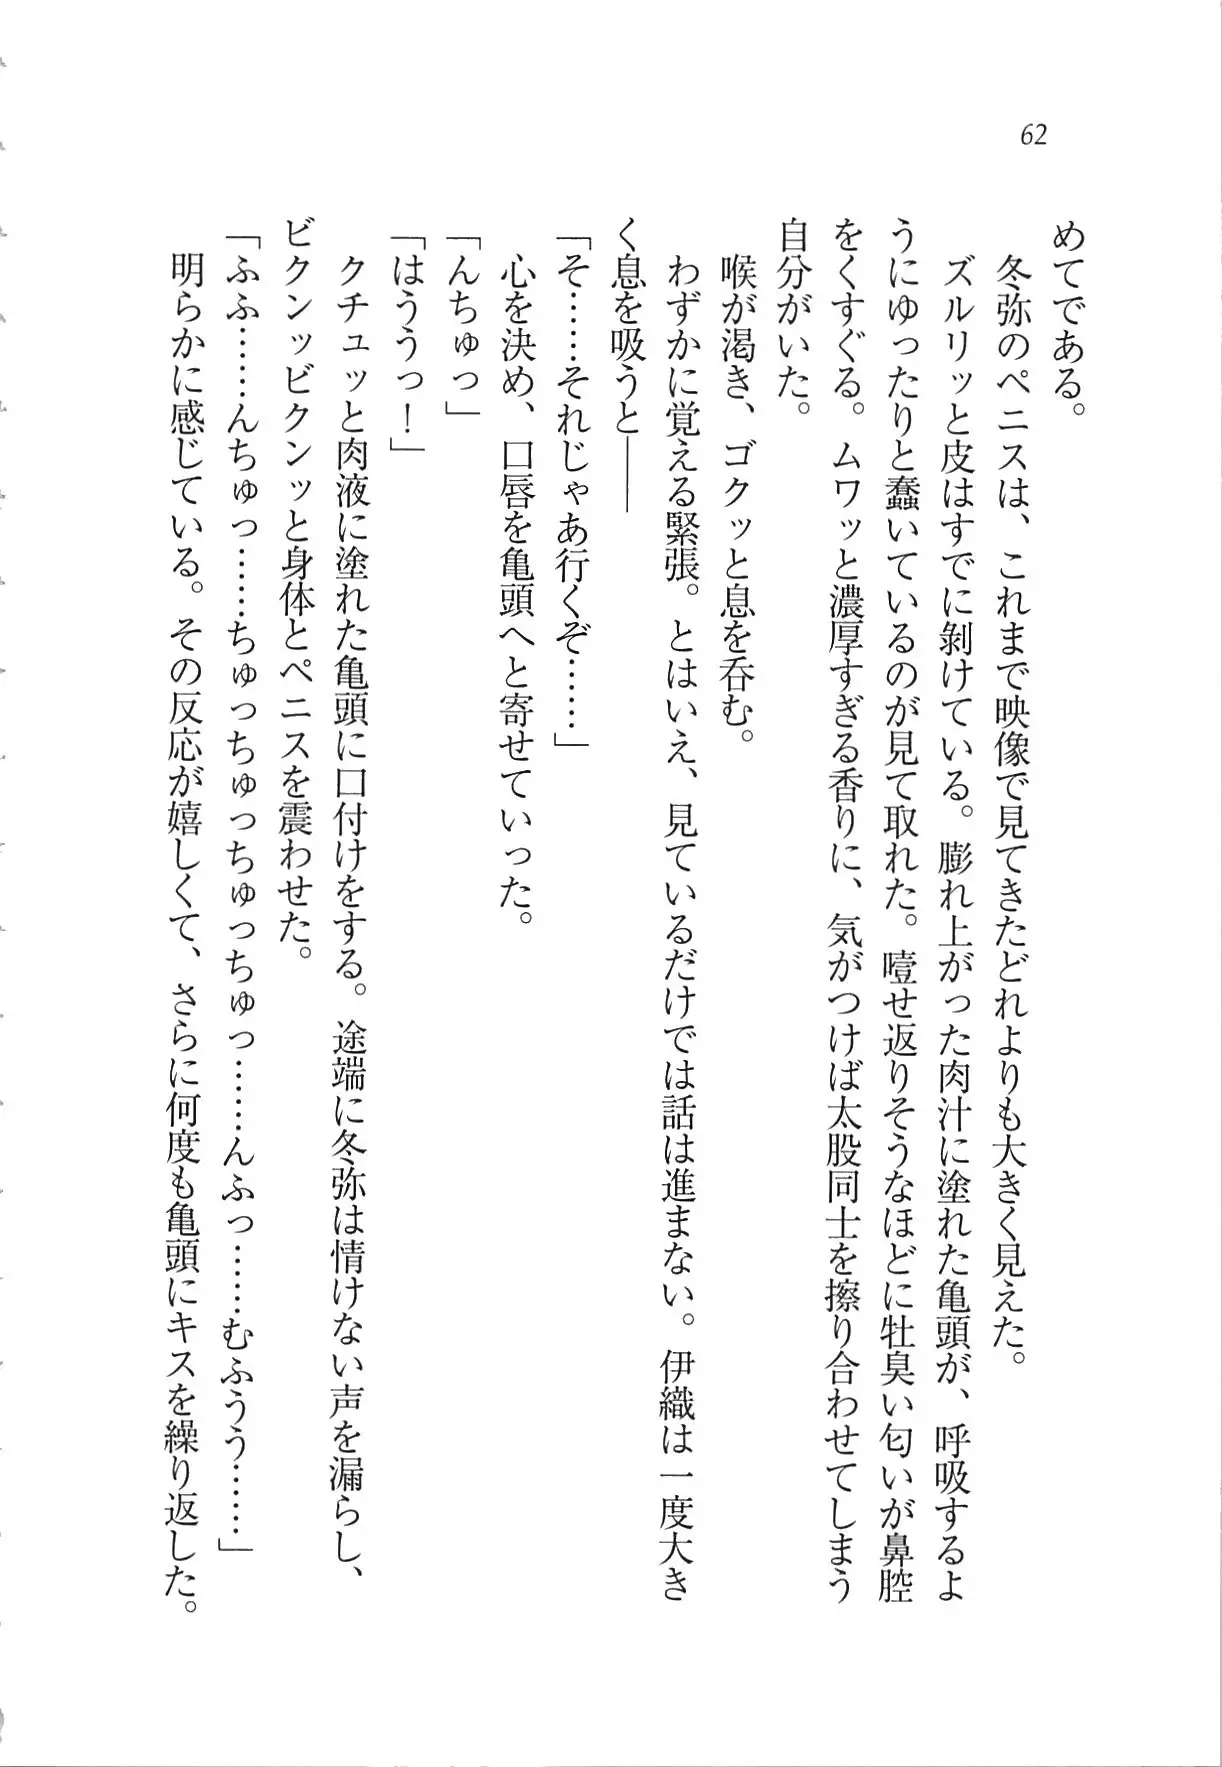 62
めてである。
冬弥のペニスは、これまで映像で見てきたどれよりも大きく見えた。
ズルリッと皮はすでに剝けている。膨れ上がった肉汁に塗れた亀頭が、呼吸するよ
うにゆったりと蠢いているのが見て取れた。噎せ返りそうなほどに牡臭い匂いが鼻腔
をくすぐる。ムワッと濃厚すぎる香りに、気がつけば太股同士を擦り合わせてしまう
自分がいた。
喉が渇き、ゴクッと息を呑む。
わずかに覚える緊張。とはいえ、見ているだけでは話は進まない。伊織は一度大き
く息を吸うと――
「そ……それじゃあ行くぞ……」
心を決め、口唇を亀頭へと寄せていった。
「んちゅっ」
「はううっ！」
クチュッと肉液に塗れた亀頭に口付けをする。途端に冬弥は情けない声を漏らし、
ビクンッビクンッと身体とペニスを震わせた。
「ふふ……んちゅっ……ちゅっちゅっちゅっちゅっ……んふっ……むふうう……」
明らかに感じている。その反応が嬉しくて、さらに何度も亀頭にキスを繰り返した。